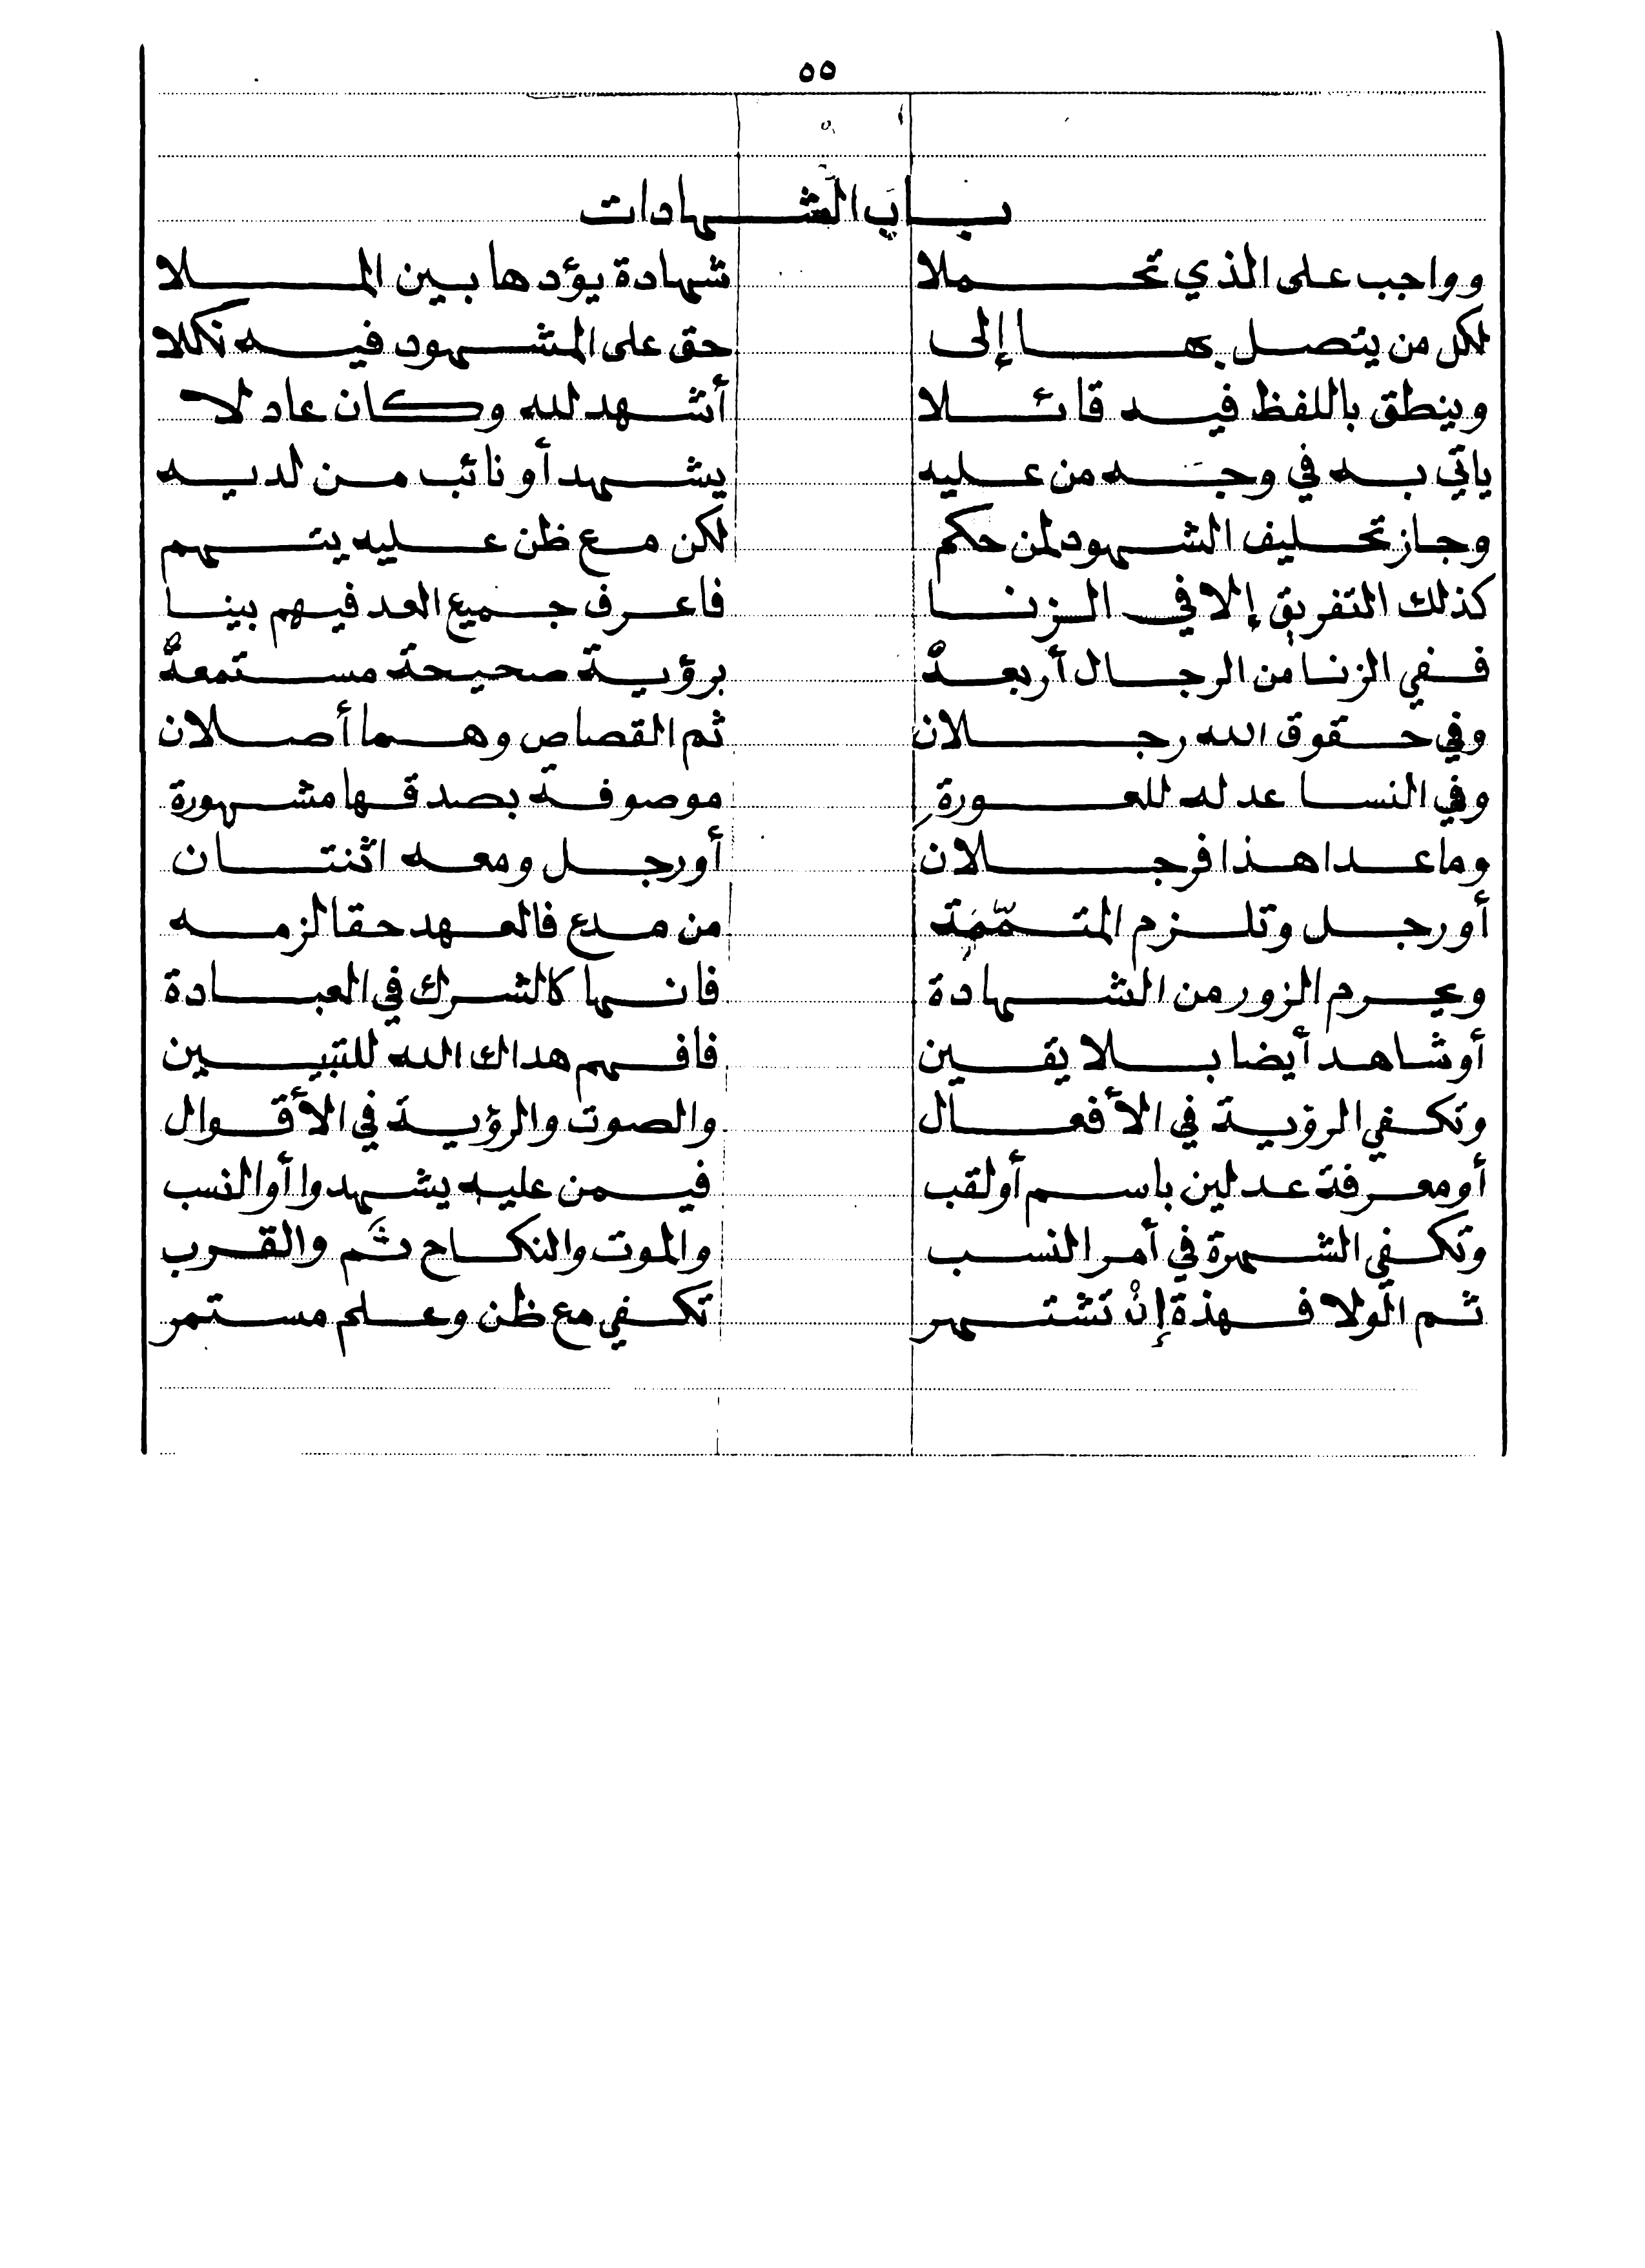 ٥٥
باب الشهادات
وواجب على الذي تحملا شهادة يؤدها بين الملا
لكل من يتصل بها إلى حق على المشهود فيه نكلا
وينطق باللفظ فيه قائلا أشهد لله وكان عادلا
ياتي به في وجه من عليه يشهد أو نائب من لديه
وجاز تحليف الشهود لمن حكم لكن مع ظن عليه يتهم
كذلك التفريق إلا في الزنا فاعرف جميع العد فيهم بينا
ففي الزنا من الرجال أربعهْ برؤية صحيحة مستمعهْ
وفي حقوق الله رجلان ثم القصاص وهما أصلان
وفي النسا عدله للعورة موصوفة بصدقها مشهورة
وما عدا هذا فرجلان أو رجل ومعه اثنتان
أو رجل وتلزم المتمّمَة من مدع فالعهد حقا لزمه
ويحرم الزور من الشهادة فانها كالشرك في العبادة
أو شاهد أيضا بلا يقين فافهم هداك الله للتبيين
وتكفي الرؤية في الأفعال والصوت والرؤية في الأقوال
أو معرفة عدلين باسم أو لقب فيمن عليه يشهدوا أو النسب
وتكفي الشهرة في أمر النسب والموت والنكاح ثَم والقرب
ثم الولا فهذة إنْ تشتهر تكفي مع ظن وعلم مستمر